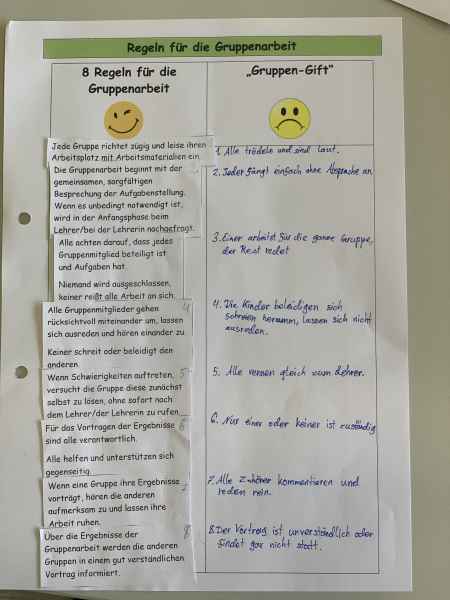 Regeln für die Gruppenarbeit
8 Regeln für die
Gruppenarbeit
„Gruppen-Gift“
Jede Gruppe richtet zügig und leise ihren
Arbeitsplatz mit Arbeitsmaterialien ein.
1. Alle trödeln und sind laut.
Die Gruppenarbeit beginnt mit der
gemeinsamen, sorgfältigen
Besprechung der Aufgabenstellung.
Wenn es unbedingt notwendig ist,
wird in der Anfangsphase beim
Lehrer/bei der Lehrerin nachgefragt.
2. Jeder fängt einfach ohne Absprache an
Alle achten darauf, dass jedes
Gruppenmitglied beteiligt ist
und Aufgaben hat.
Niemand wird ausgeschlossen,
keiner reißt alle Arbeit an sich.
3. Einer arbeitet für die ganze Gruppe,
der Rest redet
Alle Gruppenmitglieder gehen 4
rücksichtvoll miteinander um, lassen
sich ausreden und hören einander zu.
Keiner schreit oder beleidigt den
anderen
4. Die Kinder beleidigen sich
schreien herumm, lassen sich nicht
ausreden.
Wenn Schwierigkeiten auftreten, 5
versucht die Gruppe diese zunächst
selbst zu lösen, ohne sofort nach
dem Lehrer/der Lehrerin zu rufen.
5. Alle rennen gleich zum Lehrer.
Für das Vortragen der Ergebnisse 6
sind alle verantwortlich.
Alle helfen und unterstützen sich
gegenseitig
6. Nur einer oder keiner ist zuständig
Wenn eine Gruppe ihre Ergebnisse
vorträgt, hören die anderen
aufmerksam zu und lassen ihre
Arbeit ruhen.
7. Alle Zuhörer kommentieren und
reden rein.
Über die Ergebnisse der 8
Gruppenarbeit werden die anderen
Gruppen in einem gut verständlichen
Vortrag informiert.
8. Der Vortrag ist unverständlich oder
findet gar nicht statt.